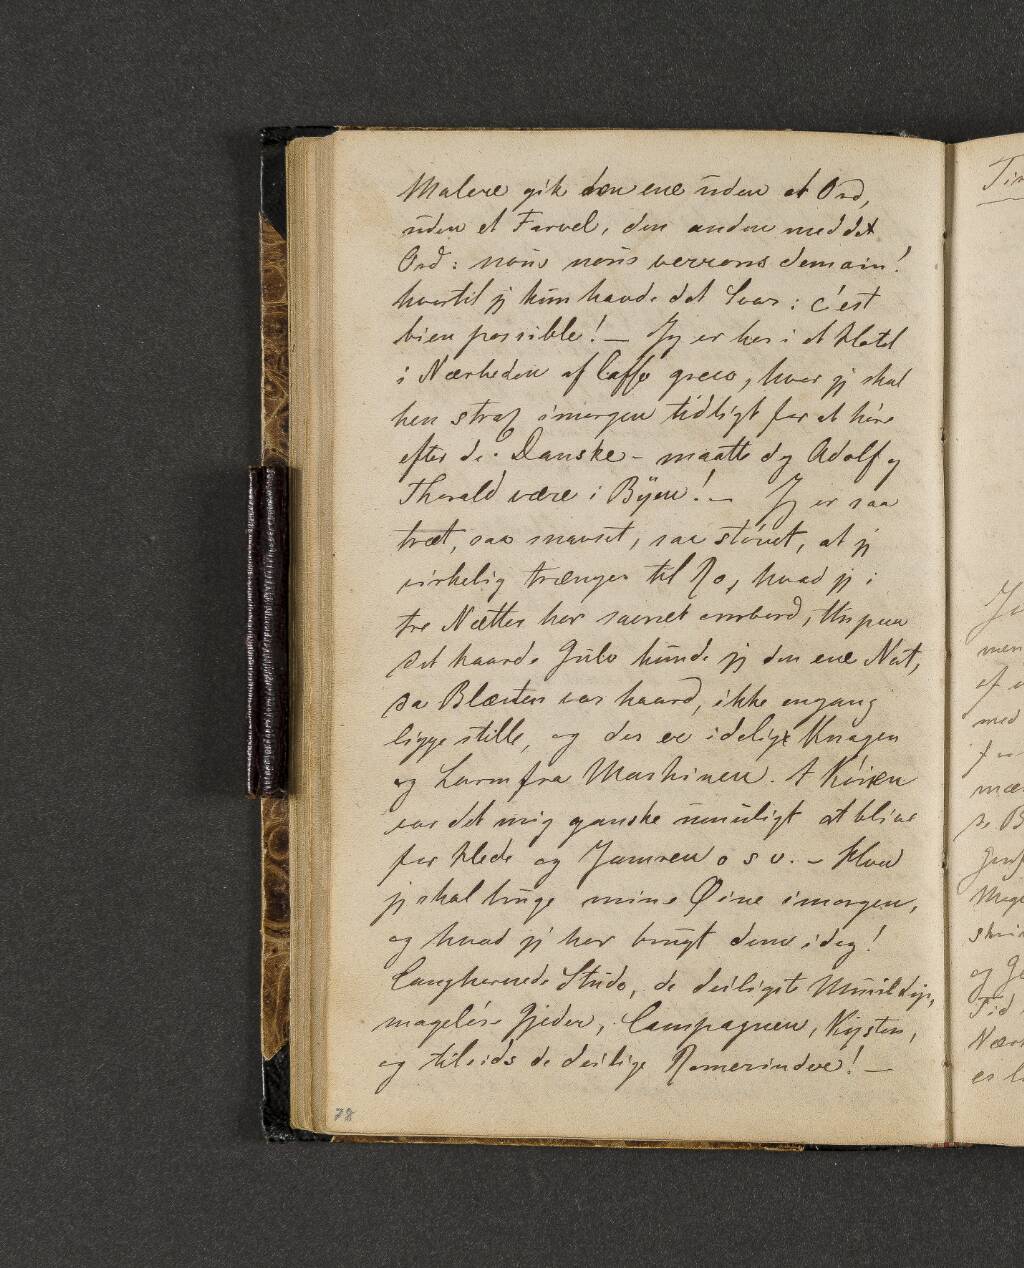 Malere gik den ene uden et Ord,
uden et Farvel, den anden med det
Ord: nous nous verrons demain!
hvortil jeg kun havde det Svar: c'est
bien possible! — Jeg er her i et Hotel
i Nærheden af Caffe greco, hvor jeg skal
hen strax imorgen tidligt for at høre
efter de Danske – maatte dog Adolf og
Thorald være i Byen! — Jeg er saa
træt, saa snavset, saa støvet, at jeg
virkelig trænger til Ro, hvad jeg i
tre Nætter har savnet ombord, thi paa
det haarde Gulv kunde jeg den ene Nat,
da Blæsten var haard, ikke engang
ligge stille, og der er idelige Knagen
og Larm fra Maskinen. I Køien
var det mig ganske umuligt at blive
for Hede og Jamren o s v. – Hvad
jeg skal bruge mine Øine imorgen,
og hvad jeg har brugt dem idag!
Langhornede Stude, de deiligste Muuldyr,
mageløse Gjeder, Campagnen, Kysten,
og tilsids de deilige Romerinder! —
78
Tir
men
af
med
for
mæ
de B
Mege
skri
og Ge
Tid
Nær
er